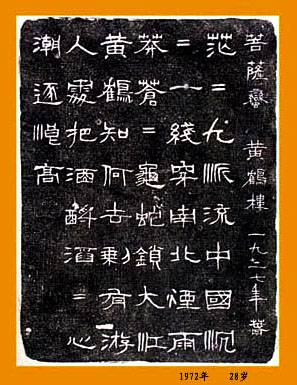 菩薩蠻 黃鶴樓 一九二七年
茫=九派流中國沉
=一綫穿南北煙雨
莽蒼=龜蛇鎖大江
黃鶴知何去剩有游
人處把酒酹滔=心
潮逐浪高
1972年 28岁